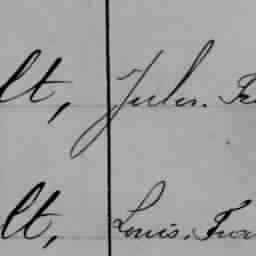 lt, Jules. Fr
lt, Louis. Fra